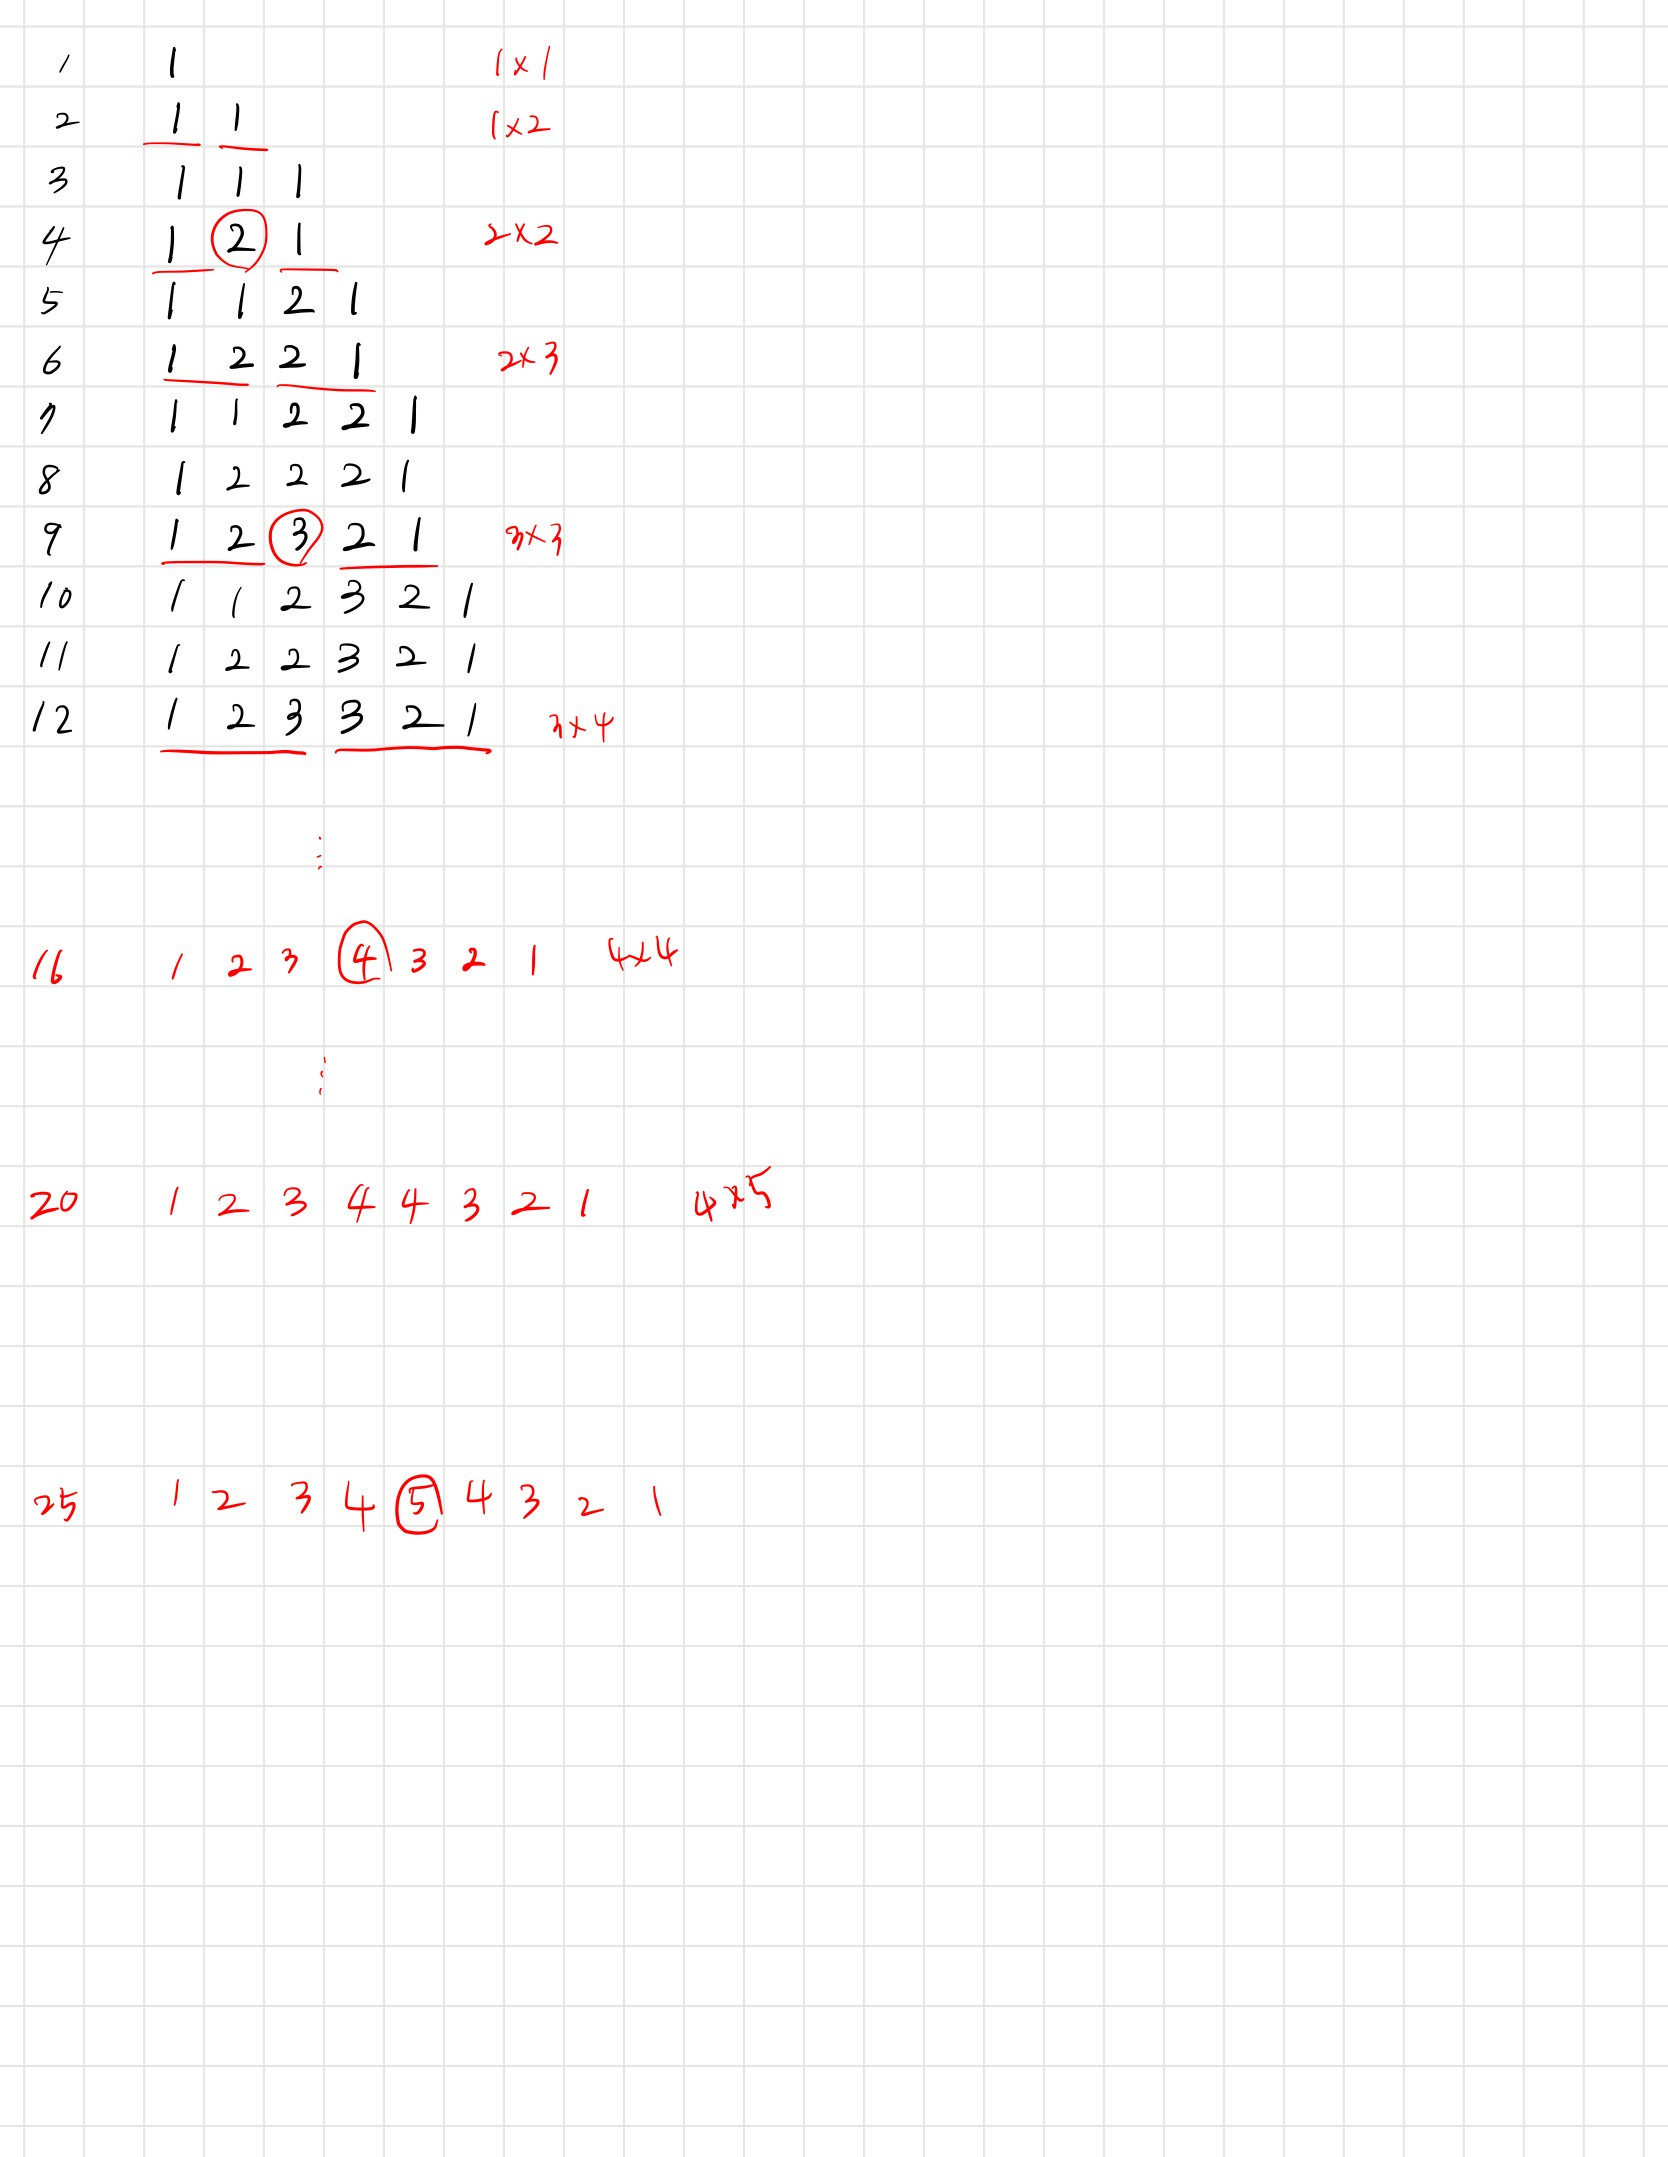 1 1 1×1
2 1 1 1×2
3 1 1 1
4 1 2 1 2×2
5 1 1 2 1
6 1 2 2 1 2×3
7 1 1 2 2 1
8 1 2 2 2 1
9 1 2 3 2 1 3×3
10 1 1 2 3 2 1
11 1 2 2 3 2 1
12 1 2 3 3 2 1 3×4
⋮
16 1 2 3 4 3 2 1 4×4
⋮
20 1 2 3 4 4 3 2 1 4×5
25 1 2 3 4 5 4 3 2 1